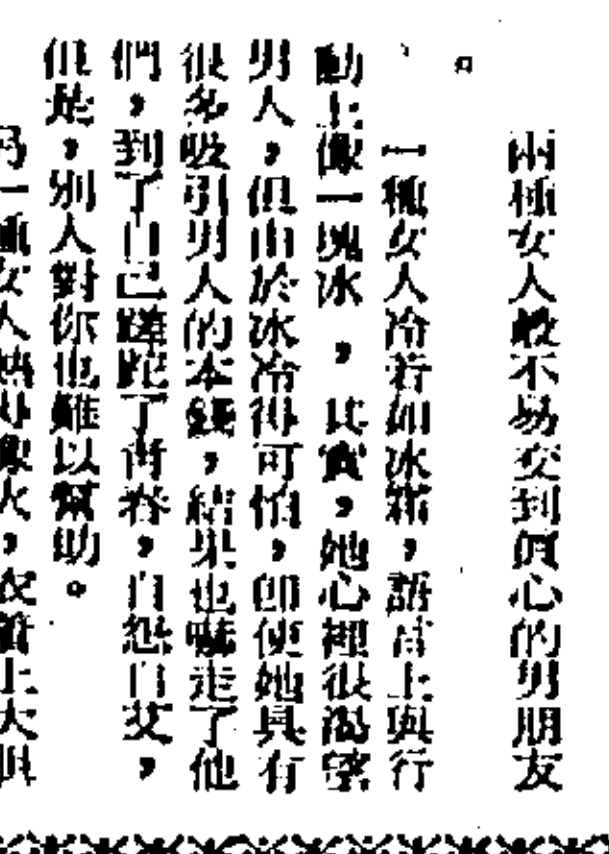 兩種女人較不易交到眞心的男朋友
。
一種女人冷若如冰霜,語言上與行
動上像一塊冰,其實,她心裡很渴望
男人,但由於冰冷得可怕,即使她具有
很多吸引男人的本錢,結果也嚇走了他
們,到了自己蹉跎了青春,自怨自艾,
但是,別人對你也難以幫助。
另一種女人熱得像火,衣著上大